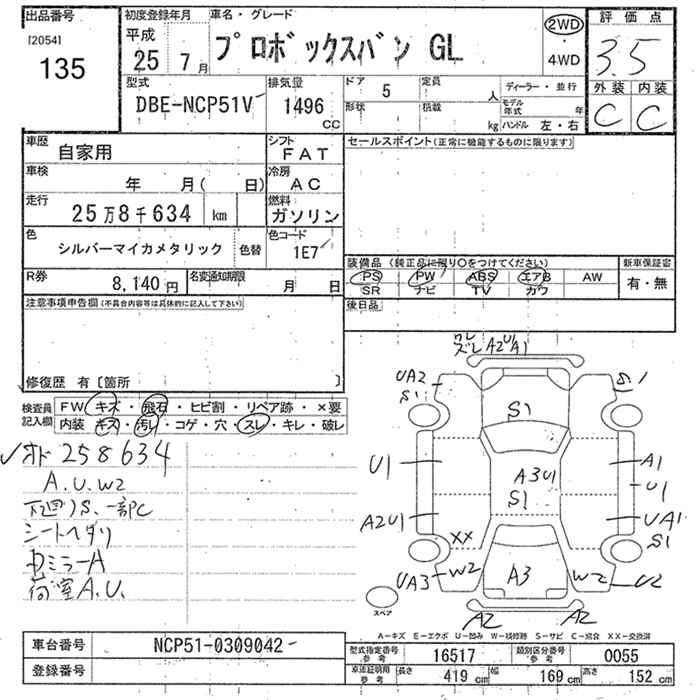 出品番号
[2054]
135
初度登録年月
平成
25 7月
車名・グレード
プロボックスバン GL
2WD
・
4WD
評価点
3.5
外装 内装
C C
型式
DBE-NCP51V
排気量
1496
CC
ドア 5
定員
人
形状
積載
kg
ディーラー・並行
モデル年式
年
ハンドル 左・右
車歴
自家用
シフト
FAT
車検
年 月( 日)
冷房
AC
走行
25万8千634 km
燃料
ガソリン
色
シルバーマイカメタリック
色替
色コード
1E7
R券
8,140円
名変通知期限
月 日
セールスポイント(正常に機能するものに限ります)
装備品 (純正品に限り○をつけてください)
PS PW ABS エアB AW
SR ナビ TV カワ
新車保証書
有・無
後日品
注意事項申告欄(不具合内容等は具体的に記入して下さい)
修復歴 有[箇所 ]
検査員記入欄
FW キズ・飛石・ヒビ割・リペア跡・×要
内装 キズ・汚レ・コゲ・穴・スレ・キレ・破レ
オド 258634
A.U.W2
下廻りS.一部C
シートヘタリ
カミラーA
荷室A.U.
ズレ A2U A1
UA2
S1
S1
S1
U1
A1
U1
A3U1
S1
A2U1
UA1
S1
XX
UA3
W2
A3
W2
U2
A2
A2
スペア
A−キズ E−エクボ U−凹み W−補修跡 S−サビ C−腐食 XX−交換済
車台番号
NCP51-0309042
登録番号
型式指定番号 参考
16517
類別区分番号 参考
0055
車庫証明用 参考
長さ 419 cm
幅 169 cm
高さ 152 cm